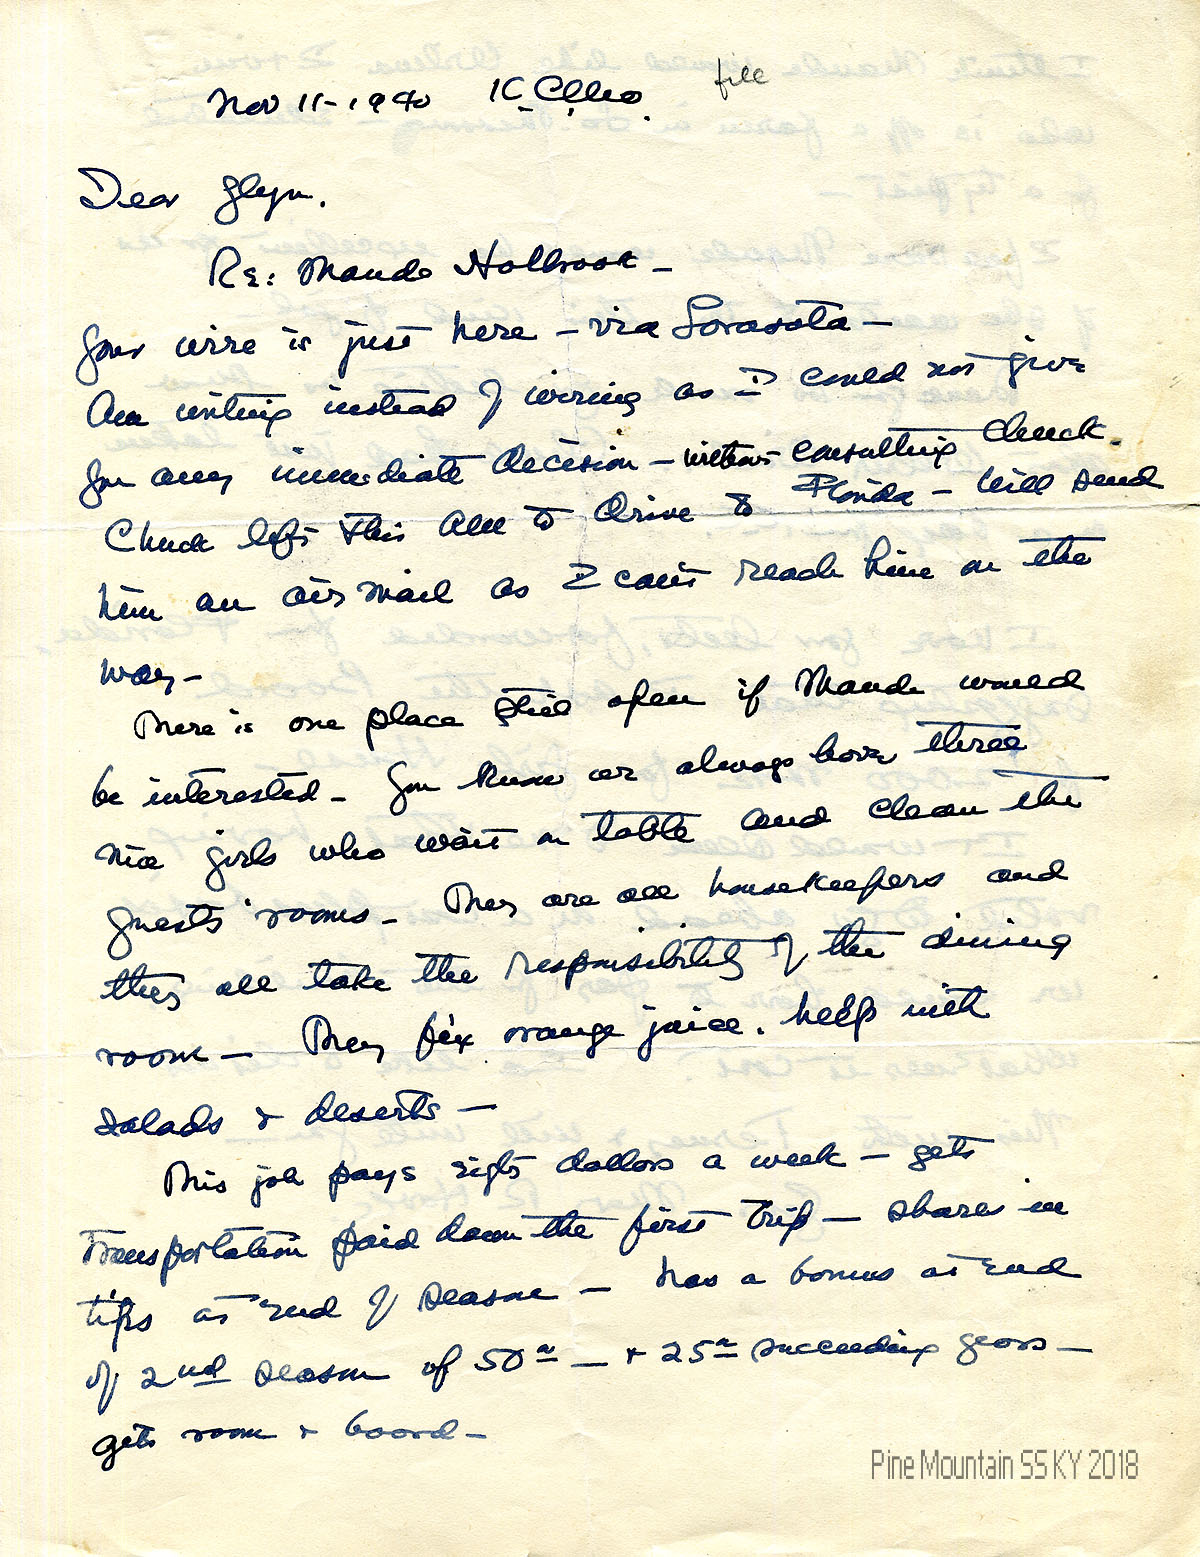 file
Nov 11-1940
Dear Glyn.
Re: Maude Holbrook -
Your wire is just here - via Sarasota -
Am writing instead of wiring as I could not give
you any immediate decision - without consulting Chuck.
Chuck left this AM to drive to Florida - Will send
him an air mail as I can't reach him on the
way -
There is one place still open if Maude would
be interested - You know we always have three
nice girls who wait on table and clean the
guests' rooms - They are all housekeepers and
they all take the responsibility of the dining
room - They fix orange juice. help with
salads & deserts -
This job pays eight dollars a week - gets
transportation paid down the first trip - shares in
tips at end of season - has a bonus at end
of 2nd season of 50 - & 25 succeeding years -
gets room & board -
Pine Mountain SS KY 2018